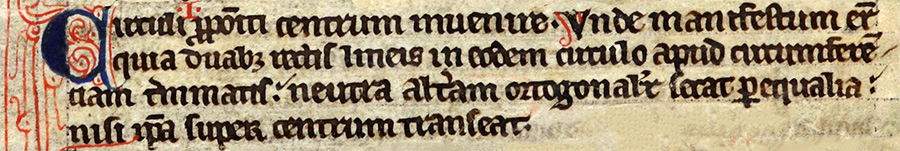 Circuli ꝓpoſiti centrum inuenire. Vnde manifestum er̄
quia duabꝫ rectis lineis in eodem circulo apud circumferē
tiam t̉minatis: neutra alt̉am ortogonalit̉ secat ꝑ equalia:
nisi ip̄a super centrum transeat.